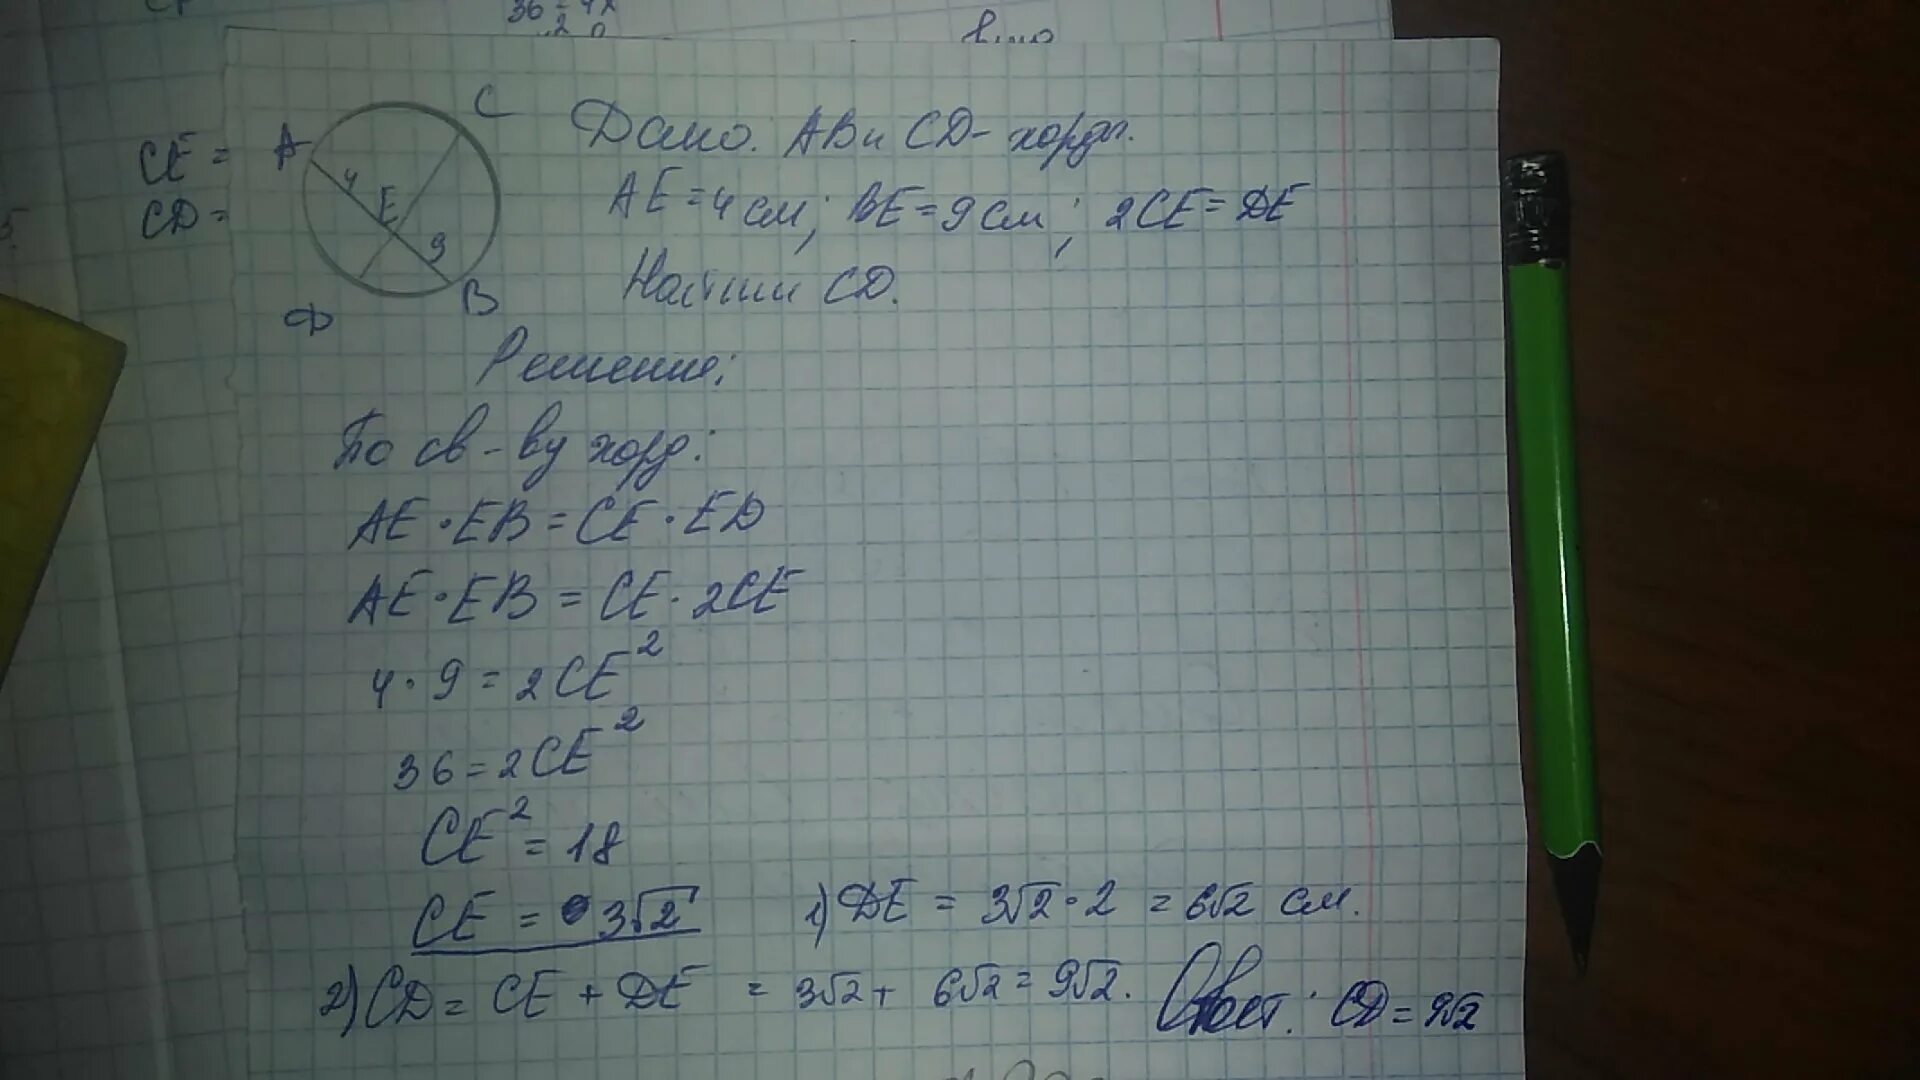 36 = 4x
CE =
CD =
A
C
4
E
9
B
D
Дано: AB и CD - хорды.
AE = 4 см; BE = 9 см; 2CE = DE
Найти CD.
Решение:
По св-ву хорд:
AE · EB = CE · ED
AE · EB = CE · 2CE
4 · 9 = 2CE²
36 = 2CE²
CE² = 18
CE = 3√2
1) DE = 3√2 · 2 = 6√2 см.
2) CD = CE + DE = 3√2 + 6√2 = 9√2.
Ответ: CD = 9√2